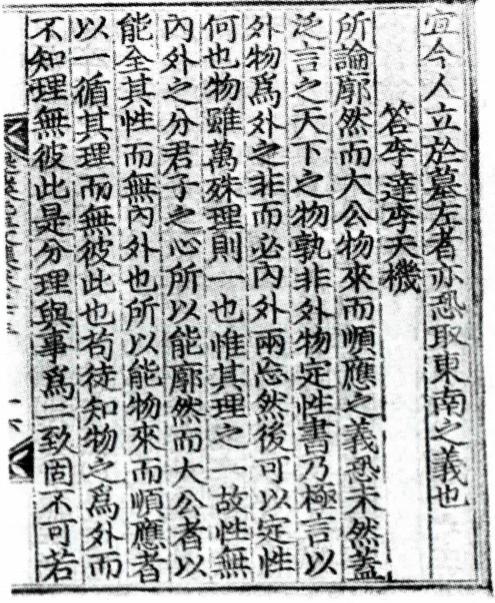 宜今人立於墓左者亦恐取東南之義也
答李達李天機
所論廓然而大公物來而順應之義恐未然蓋
泛言之天下之物孰非外物定性書乃極言以
外物爲外之非而必內外兩忘然後可以定性
何也物雖萬殊理則一也惟其理之一故性無
內外之分君子之心所以能廓然而大公者以
能全其性而無內外也所以能物來而順應者
以一循其理而無彼此也苟徒知物之爲外而
不知理無彼此是分理與事爲二致固不可若